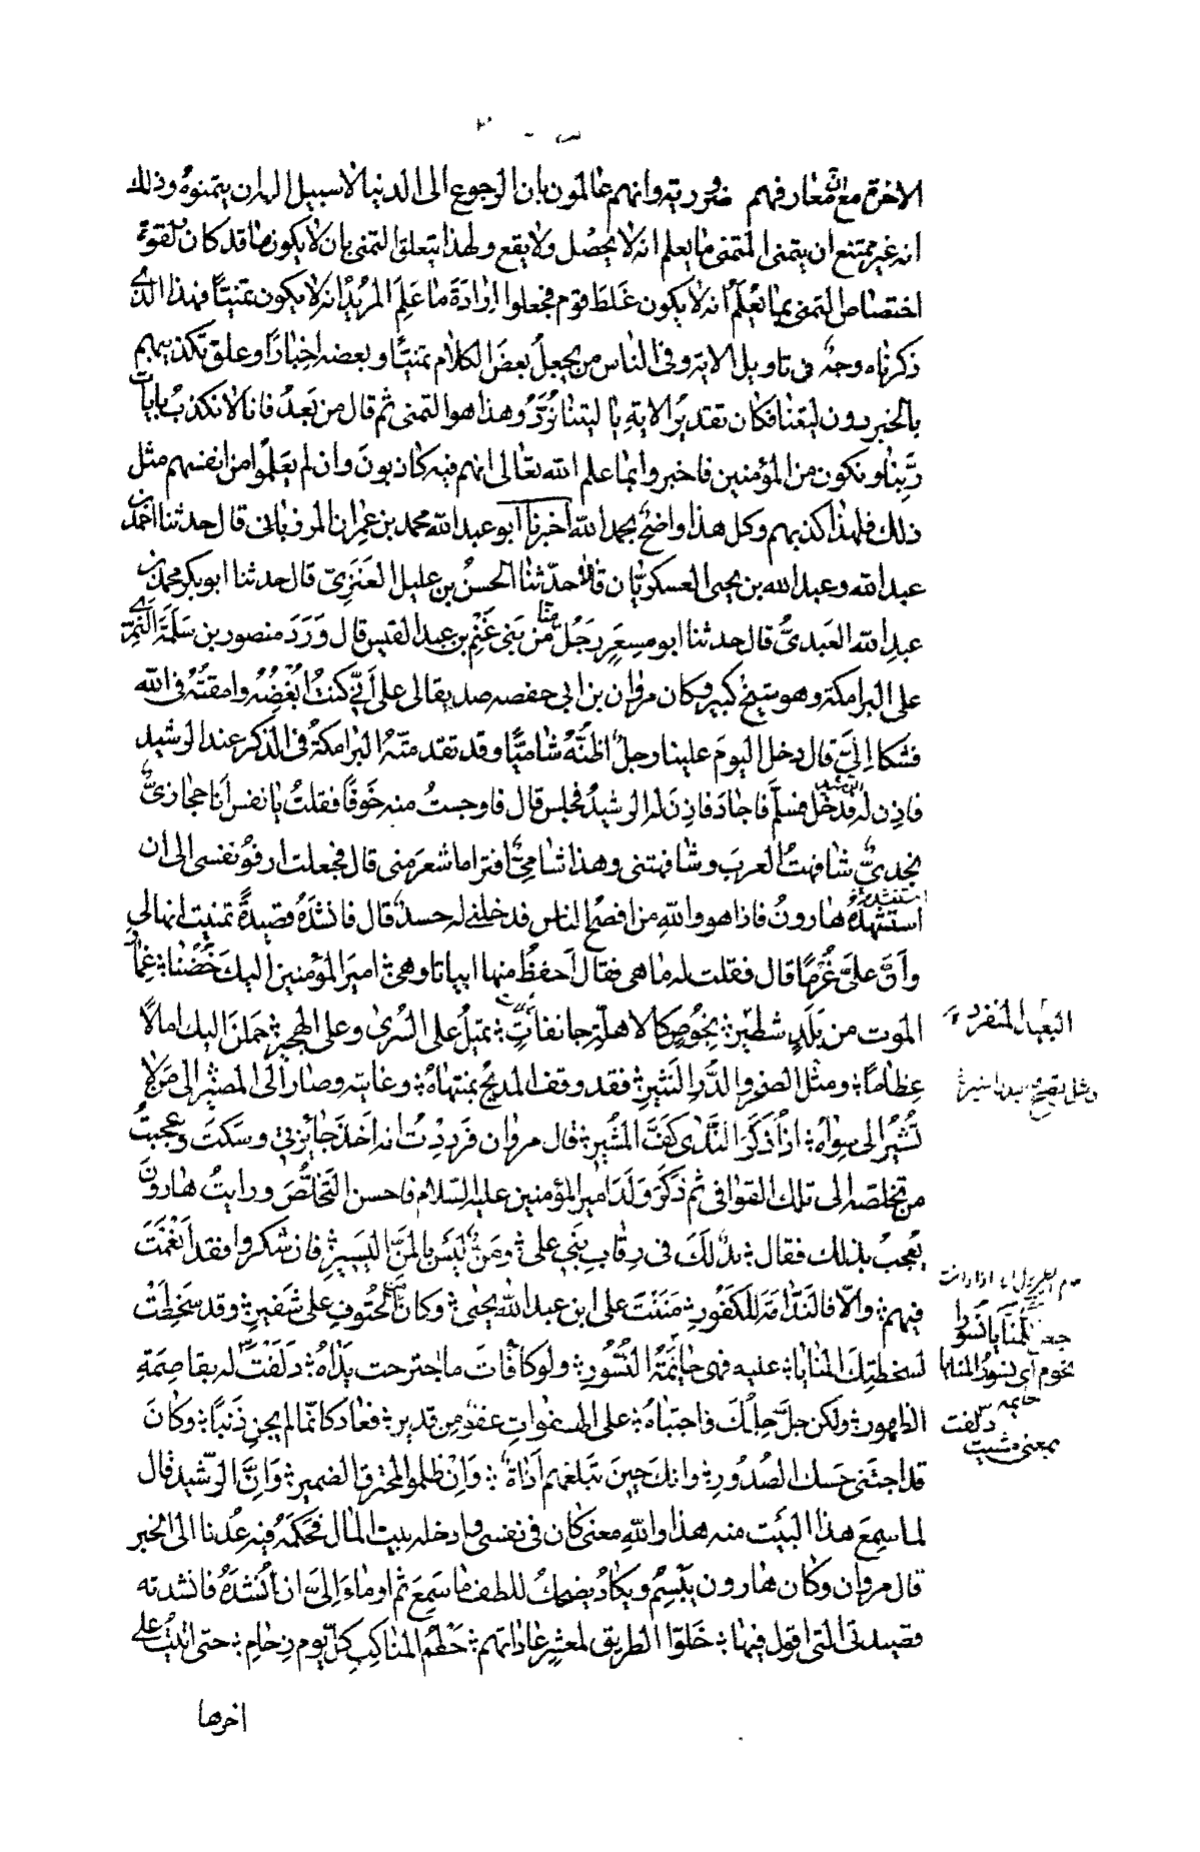 الاخرة مع ان معارفهم ضرورية وانهم عالمون بان الرجوع الى الدنيا لا سبيل اليه ان يتمنوه وذلك
انه غير ممتنع ان يتمنى المتمنى ما يعلم انه لا يحصل ولا يقع ولهذا يتعلق التمنى بان لا يكون ما قد كان ولقوة
اختصاص التمنى بما يُعْلَمُ انه لا يكون غَلَطَ قوم فجعلوا اِرادَةَ ما عَلِمَ المريدُ انه لا يكون تمنيًا فهذا الذى
ذكرناه وجهٌ فى تاويل الاية وفى الناس من يجعلُ بعضَ الكلام تمنيًا وبعضه اِخبارًا وعلق تكذيبهم
بالخبر دون ليتنا فكان تقديرُ الاية يا ليتنا نُرَدُّ وهذا هو التمنى ثم قال من بَعدُ فانا لا نكذبُ بايات
رَبِّنا ونكون من المؤمنين فاخبروا بما علم الله تعالى انهم فيه كاذبونَ وان لم يَعلموا من انفسهم مثل
ذلك فلهذا كذبهم وكل هذا واضحٌ بحمد الله اخبرنا ابو عبد الله محمد بن عمران المرزبانى قال حدثنا احمد بن
عبد الله وعبد الله بن يحيى العسكريّان قالا حدّثنا الحسنُ بن عليل العَنَزِىّ قال حدثنا ابو بكر محمد بن
عبدِ الله العَبدىُّ قال حدثنا ابو مسعرٍ رَجُلٌ منّا من بَنى غَنْمِ بن عبد القيس قال وَرَدَ منصور بن سَلَمَةَ النمرى
على البرامكة وهو شيخ كبير وكان مروان بن ابى حفصه صديقا لى على اَنّى كنتُ اُبْغِضُهُ وامقتُهُ فى الله
فشكا اِلىَّ قال دخل اليومَ علينا رجلٌ اظنّه شاميًّا وقد تقدمتْهُ البرامكةُ فى الذكر عند الرشيد
فاذِن له الرشيد فدخل فسلّم فاجادَ فاذِنَ له الرشيدُ فجلس قال فاوجستُ منه خَوفًا فقلتُ يا نفس اَنا حجازىٌّ
نجدىٌّ شافهتُ العربَ وشافهتنى وهذا شامىٌّ افتراه اشعرَ منى قال فجعلت ارفوُ نفسى الى ان
استنشده
استنشدَهُ هارونُ فاذا هو واللهِ من افصح الناس فدخلنى له حسدٌ قال فانشَدَهُ قصيدةً تمنيت انها لى
وَاَنّ علىَّ غُرْمًا قال فقلت له ما هى فقال اَحفظُ منها ابياتا وهى اميرَ المؤمنين اليكَ خُضْنا غمارَ
الموت من بَلَدٍ شطير بِخُوصٍ كالاهلّةِ جانفاتٍ تميلُ على السُّرى وعلى الهجير حملنَ اليك امالًا
عِظامًا ومثل الصخر والدُّرِ النَّثيرِ فقد وقف المديحُ بمنتهاهُ وغايته وصار الى المصير الى مَن لا
تُشيرُ الى سِواهُ اذا ذُكِرَ النَّدى كَفُّ المشيرِ قال مروان فَوَدِدْتُ انه اَخذ جائزتى وسكتَ وعجبتُ
من تخلصّه الى تلك القوافى ثم ذَكَرَ وَلَدَ امير المؤمنين عليه السّلام فاحسن التخلّصَ ورايتُ هارونَ
يُعجبُ بذلك فقال يدٌ لَكَ فى رقابِ بَنِى على ومَنٌّ لَيْسَ بالمَنِّ اليَسيرِ فان شكروا فقد اَنْعَمْتَ
فيهم والّا فالنّدامَةُ للكَفُورِ مَنَنْتَ على ابن عبد الله يحيى وكان من الحُتُوفِ على شَفيرٍ وقد سَخِطَتْ
لسخطتِكَ المنايا عليه فهى حائمَةُ النُّسُورِ ولو كافَأْتَ ما اجترحت يَداهُ دَلَفْتَ له بقاصِمَةِ
الظهورِ ولكن جلَّ حِلْمُكَ فاجتباهُ على الهفواتِ عفوٌ من قدير فعاد كانّما لم يجنِ ذَنبًا وكانَ
قد اجتنى حَسَكَ الصُّدُورِ وانك حِينَ تبلغهم اَذاةٌ وَاِنْ ظلموا لمحترقُ الضمير وَانَّ الرّشيد قال
لما سَمِعَ هذا البيت منه هذا واللهِ معنىً كان فى نفسى وادخله بيت المال فحَكّمَهُ فيه عُدنا الى الخبر
قال مروان وكان هارون يَبْسِمُ ويكادُ يضحكُ للطف ما سَمِعَ ثم اومأ اِلىَّ ان اُنْشِدَهُ فانشدته
قصيدتى التى اقول فيها خَلّوا الطريق لمعشرٍ عاداتهم حَطْمُ المناكِبِ كلَّ يَومِ زِحامِ حتى اتيتُ على
اخرها
جمع
دلفت
بمعنى مشيت